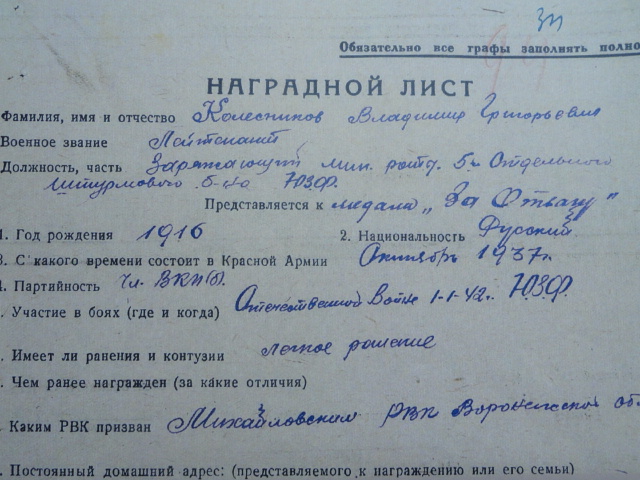 Зп
Обязательно все графы заполнять полно
НАГРАДНОЙ ЛИСТ
Фамилия, имя и отчество Колесников Владимир Григорьевич
Военное звание Лейтенант
Должность, часть Заряжающий мин. роты. 5го Отдельного
Штурмового б-на ЮЗФ.
Представляется к медали „За Отвагу"
1. Год рождения 1916 2. Национальность Русский
3. С какого времени состоит в Красной Армии Октябрь 1937г.
4. Партийность Чл. ВКП(б).
. Участие в боях (где и когда) Отечественной Войне 1-1-42г. ЮЗФ.
. Имеет ли ранения и контузии легкое ранение
. Чем ранее награжден (за какие отличия)
. Каким РВК призван Михайловским РВК Воронежской об
. Постоянный домашний адрес: (представляемого к награждению или его семьи)